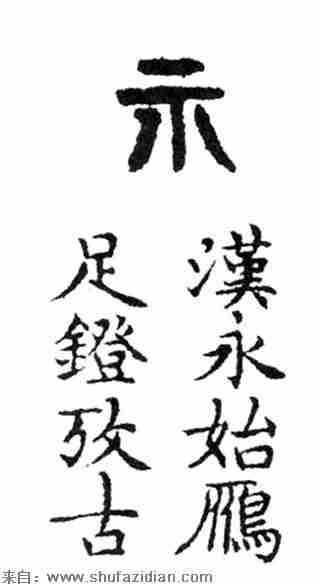 示
漢永始鴈
足鐙攷古
来自：www.shufazidian.com